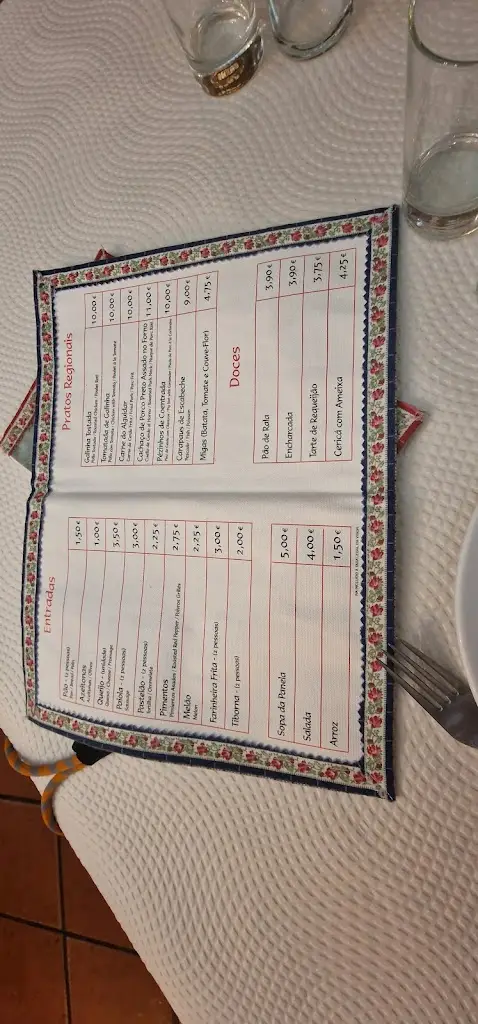 Entradas
Pão - (2 pessoas) 1,50 €
Pan / Bread / Pain
Azeitonas 1,00 €
Aceitunas / Olives
Queijo - (unidade) 3,50 €
Queso / Cheese / Fromage
Paiola - (2 pessoas) 3,00 €
Pasteldo - (2 pessoas) 2,25 €
Pimentos 2,75 €
Pimientos Asados / Roasted Red Pepper / Poivron Grillés
Melão 2,25 €
Melon
Farinheira Frita - (2 pessoas) 3,00 €
Tiborna - (2 pessoas) 2,00 €
Sopa da Panela 5,00 €
Salada 4,00 €
Arroz 1,50 €
Pratos Regionais
Galinha Tostada 10,00 €
Tomatada de Galinha 10,00 €
Carne do Alguidar 10,00 €
Cachaço de Porco Preto Assado no Forno 11,00 €
Pezinhos de Coentrada 10,00 €
Carapaus de Escabeche 9,00 €
Migas (Batata, Tomate e Couve-Flor) 4,75 €
Doces
Pão de Rala 3,90 €
Encharcada 3,90 €
Tarte de Requeijão 3,75 €
Cericá com Ameixa 4,25 €